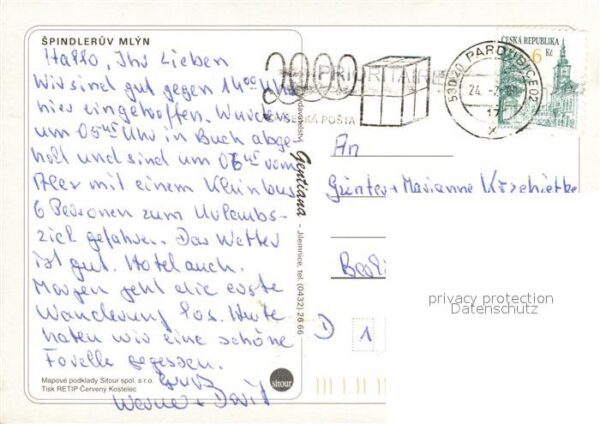 ŠPINDLERŮV MLÝN
Hallo, Ihr Lieben
Wir sind gut gegen 14⁰⁰ Uhr
hier eingetroffen. Wurden
um 05⁴⁵ Uhr in Buch abge-
holt und sind um 06⁴⁵ vom
Alex mit einem Kleinbus
6 Personen zum Urlaubs-
ziel gefahren. Das Wetter
ist gut. Hotel auch.
Morgen geht die erste
Wanderung los. Heute
haben wir eine schöne
Forelle gegessen.
Gruß
Werner + Davit
Mapové podklady Sitour spol. s r.o.
Tisk RETIP Červený Kostelec
sitour
Gentiana – Jilemnice, tel. (0432) 26 66
PRIORITAIRE
ČESKÁ POŠTA
530 20 PARDUBICE 02
24. -7.
17
ČESKÁ REPUBLIKA
6 Kč
An
Günter + Marianne
Berli
D 1
privacy protection
Datenschutz